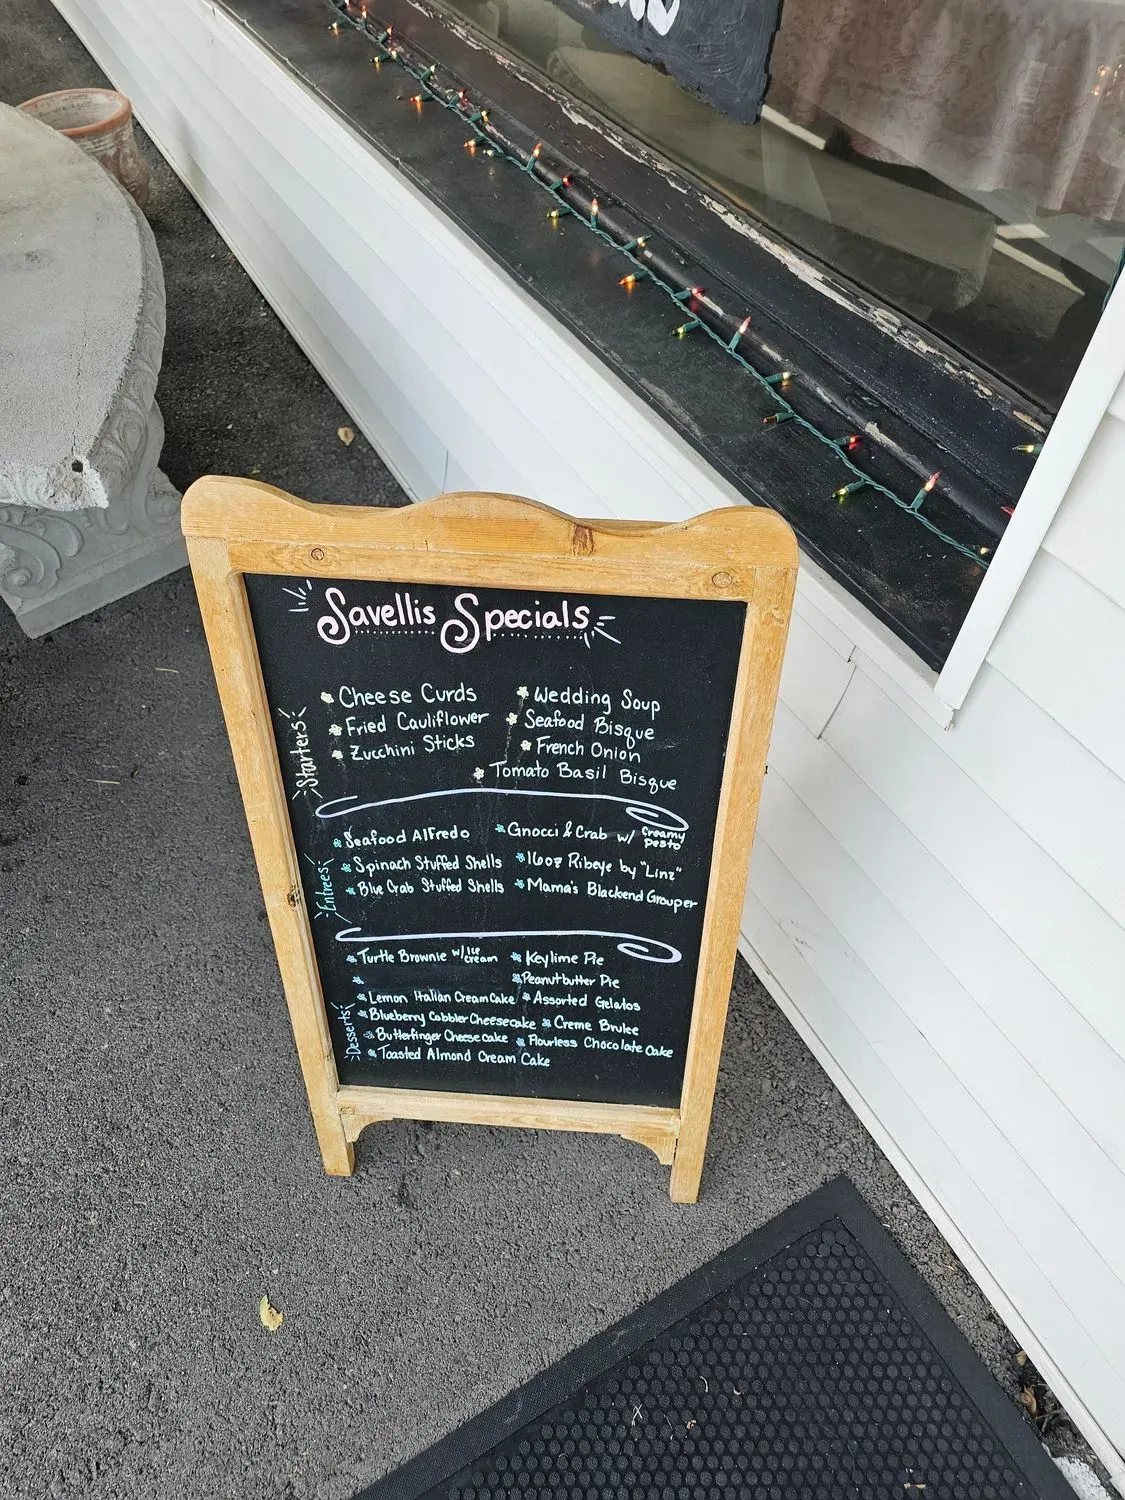 Savellis Specials
Starters
Cheese Curds
Fried Cauliflower
Zucchini Sticks
Wedding Soup
Seafood Bisque
French Onion
Tomato Basil Bisque
Entrees
Seafood Alfredo
Spinach Stuffed Shells
Blue Crab Stuffed Shells
Gnocci & Crab w/ Creamy Pesto
16oz Ribeye by "Linz"
Mama's Blackend Grouper
Desserts
Turtle Brownie w/ Ice Cream
Lemon Italian Cream Cake
Blueberry Cobbler Cheesecake
Butterfinger Cheesecake
Toasted Almond Cream Cake
Keylime Pie
Peanutbutter Pie
Assorted Gelatos
Creme Brulee
Flourless Chocolate Cake